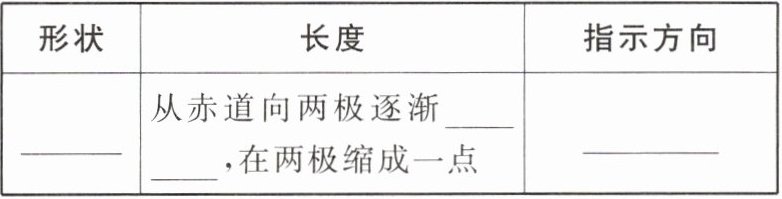 形状 长度 指示方向
从赤道向两极逐渐____
____ ____,在两极缩成一点 ____